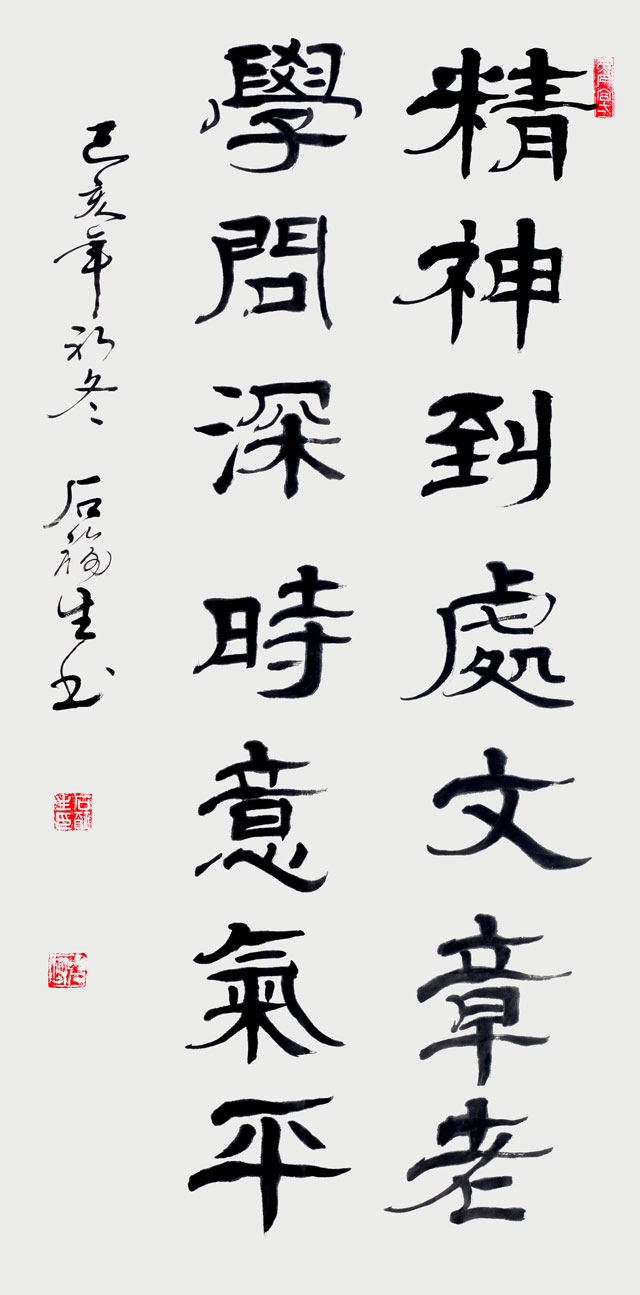 精神到處文章老
學問深時意氣平
己亥年初冬 石福生书